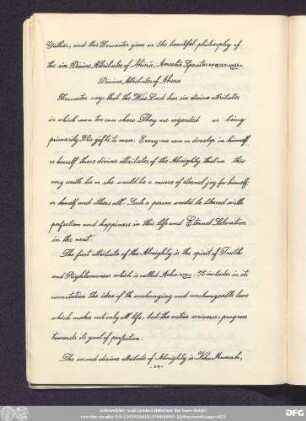 Gathas, and this Zoroaster gives in the beautiful philosophy of
the six Divine Attributes of Ahura, Ameshâ Spenta
Divine Attributes of Ahura
Zoroaster says that the Wise Lord has six divine attributes
in which men too can share. They are regarded as being
primarily His gifts to men. Every one can so develop in himself
or herself these divine attributes of the Almighty that on this
very earth he or she would be a source of eternal joy for himself,
or herself and others all. Such a person would be blessed with
perfection and happiness in this life and Eternal Salvation
in the next.
The first attribute of the Almighty is the spirit of Truth
and Righteousness which is called Asha. It includes in its
connotation the idea of the unchanging and unchangeable laws
which makes not only all life, but the entire universe, progress
towards its goal of perfection.
The second divine attribute of Almighty is Vohu Manah,
Universitäts- und Landesbibliothek Sachsen-Anhalt
DFG